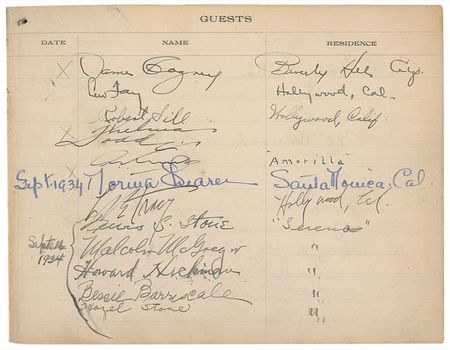 GUESTS
DATE NAME RESIDENCE
X James Cagney Beverly Hills
Lew Hollywood, Cal.
Robert Hollywood, Calif.
X Thelma
Todd
X
"Amorilla"
Sept. 1934 Norma Shearer Santa Monica, Cal.
Hollywood, Cal.
Lewis S. Stone "Serena"
Sept 16 Malcolm McGregor "
1934 Howard Hickman "
Bessie Barriscale "
Hazel Stone "